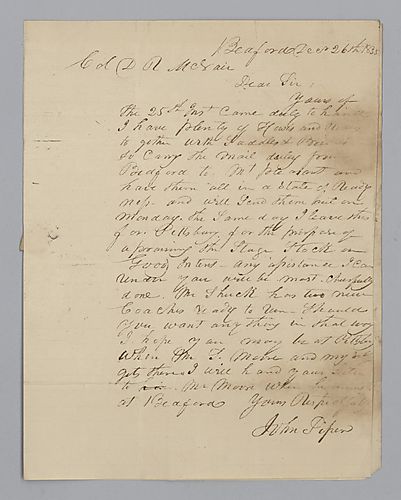 Bedford Decr 26th 183
Col D R McNair
Dear Sir,
Yours of
the 25th Inst Came duly to hand
I have plenty of Horses and
to gether with Saddles &
to Carry the mail daily from
Bedford to Mt pleasant and
have them all in a State of Ready
ness and will Send them out on
Monday the Same day I leave this
for Pittsburg for the purpose of
the Stage Stock on
Good Intent any I Can
render you will be most Chearfully
done. Mr Shuck has two new
Coaches ready to run Should
You want any thing in that way
I hope you may be at Pittsbg
When Mr T. Moore and my self
gets there I will hand your letter
to Mr Moore when he
at Bedford Yours Respectfully
John Piper